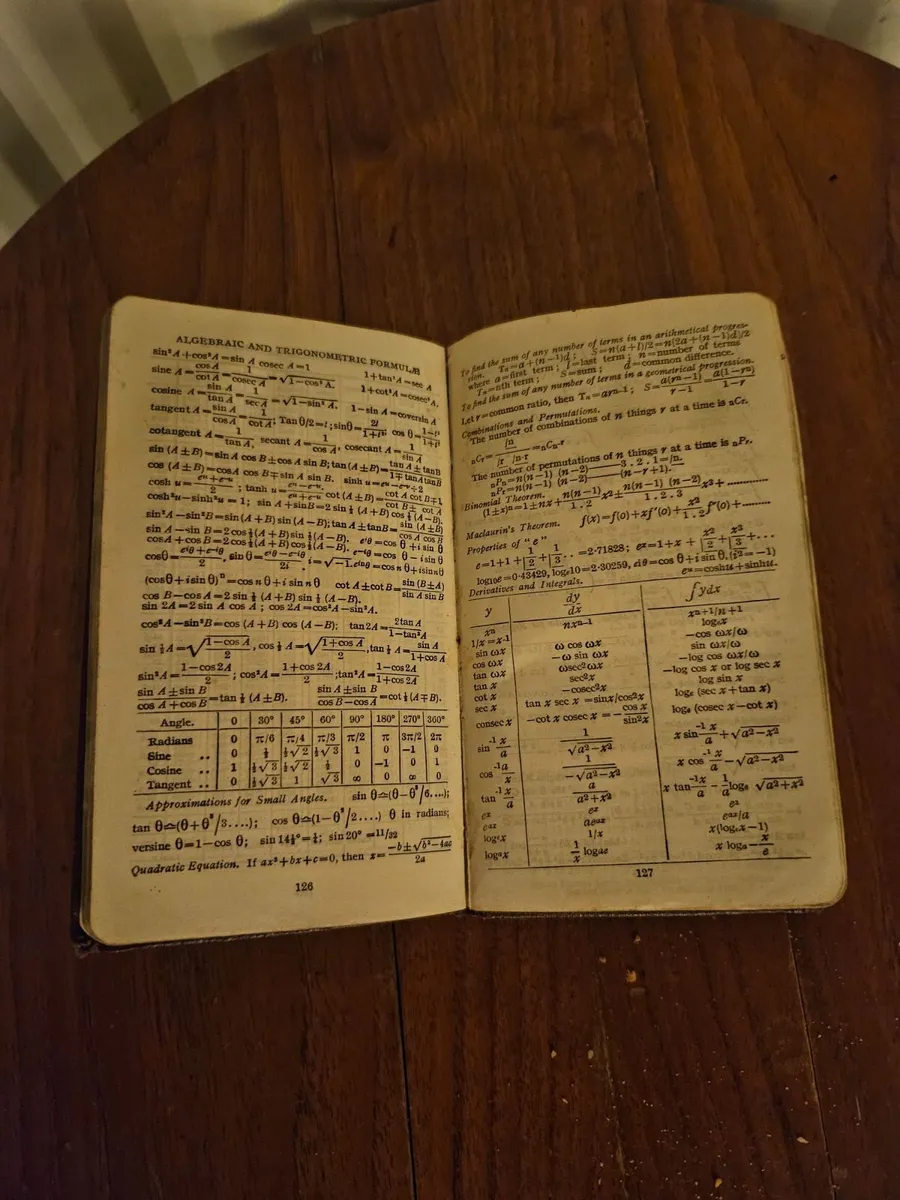 ALGEBRAIC AND TRIGONOMETRIC FORMULÆ
sin²A+cos²A=sin A cosec A=1
1+tan²A=sec A
sine A=cos A/cot A=1/cosec A=√1−cos²A.
1+cot²A=cosec²A.
cosine A=sin A/tan A=1/sec A=√1−sin²A.
1−sin A=coversin A
tangent A=sin A/cos A=1/cot A; Tan θ/2=t; sinθ=2t/1+t²; cos θ=1−t²/1+t²
cotangent A=1/tan A, secant A=1/cos A, cosecant A=1/sin A
sin (A±B)=sin A cos B±cos A sin B; tan (A±B)=tan A±tanB/1∓tanAtanB
cos (A±B)=cosA cos B∓sin A sin B. sinh u=eᵘ−e⁻ᵘ÷2
cosh u=eᵘ+e⁻ᵘ/2; tanh u=eᵘ−e⁻ᵘ/eᵘ+e⁻ᵘ cot (A±B)=cot A cot B∓1/cot B± cot A
cosh²u−sinh²u=1; sin A+sinB=2 sin ½ (A+B) cos ½(A−B).
sin²A−sin²B=sin(A+B) sin (A−B); tan A±tanB=sin (A±B)/cos A cos B
sin A−sin B=2 cos ½(A+B) sin ½(A−B). e^iθ=cos θ+i sin θ
cos A+cos B=2 cos ½(A+B) cos ½(A−B). e^−iθ=cos θ−i sin θ
cosθ=e^iθ+e^−iθ/2, sin θ=e^iθ−e^−iθ/2i, i=√−1. e^inθ=cos nθ+isin nθ
(cosθ+i sin θ)ⁿ=cos n θ+i sin n θ cot A±cot B=sin (B±A)/sin A sin B
cos B−cos A=2 sin ½ (A+B) sin ½ (A−B).
sin 2A=2 sin A cos A; cos 2A=cos²A−sin²A.
cos²A−sin²B=cos (A+B) cos (A−B); tan2A=2tan A/1−tan²A
sin ½A=√1−cos A/2, cos ½ A=√1+cos A/2, tan ½ A=sin A/1+cos A
sin²A=1−cos 2A/2; cos²A=1+cos 2A/2; tan²A=1−cos2A/1+cos2A
sin A±sin B/cos A+cos B=tan ½ (A±B). sin A±sin B/cos B−cos A=cot ½ (A∓B).
Angle. 0 30° 45° 60° 90° 180° 270° 360°
Radians 0 π/6 π/4 π/3 π/2 π 3π/2 2π
Sine .. 0 ½ ½√2 ½√3 1 0 −1 0
Cosine .. 1 ½√3 ½√2 ½ 0 −1 0 1
Tangent .. 0 ⅓√3 1 √3 ∞ 0 ∞ 0
Approximations for Small Angles. sin θ≏(θ−θ³/6....);
tan θ≏(θ+θ³/3....); cos θ≏(1−θ²/2....) θ in radians;
versine θ=1−cos θ; sin 14½°=¼; sin 20°=11/32
Quadratic Equation. If ax²+bx+c=0, then x=−b±√b²−4ac/2a
126
To find the sum of any number of terms in an arithmetical progres-
sion. Tₙ=a+(n−1)d; S=n(a+l)/2=n(2a+(n−1)d)/2
where a=first term; l=last term; n=number of terms
Tₙ=nth term; S=sum; d=common difference.
To find the sum of any number of terms in a geometrical progression.
Let r=common ratio, then Tₙ=arⁿ⁻¹; S=a(rⁿ−1)/r−1=a(1−rⁿ)/1−r
Combinations and Permutations.
The number of combinations of n things r at a time is ₙCᵣ.
ₙCᵣ=/n//r /n-r=ₙCₙ₋ᵣ
The number of permutations of n things r at a time is ₙPᵣ.
ₙPₙ=n(n−1) (n−2)——3.2.1=/n.
ₙPᵣ=n(n−1) (n−2)——(n−r+1).
Binomial Theorem.
(1±x)ⁿ=1±nx+n(n−1)/1.2 x²±n(n−1) (n−2)/1.2.3 x³+............
Maclaurin's Theorem. f(x)=f(0)+xf′(0)+x²/1.2 f″(0)+.........
Properties of "e"
e=1+1+1/|2+1/|3..=2·71828; eˣ=1+x+x²/|2+x³/|3+...
log₁₀e=0·43429, logₑ10=2·30259, e^iθ=cos θ+i sin θ. (i²=−1)
eᵘ=coshu+sinhu.
Derivatives and Integrals.
y dy/dx ∫ydx
xⁿ nxⁿ⁻¹ xⁿ⁺¹/n+1
1/x=x⁻¹ logₑx
sin ωx ω cos ωx −cos ωx/ω
cos ωx −ω sin ωx sin ωx/ω
tan ωx ωsec²ωx −log cos ωx/ω
tan x sec²x −log cos x or log sec x
cot x −cosec²x log sin x
sec x tan x sec x=sinx/cos²x logₑ (sec x+tan x)
consec x −cot x cosec x=−cos x/sin2x logₑ (cosec x−cot x)
sin⁻¹x/a 1/√a²−x² x sin⁻¹x/a+√a²−x²
cos⁻¹a/x 1/−√a²−x² x cos⁻¹x/a−√a²−x²
tan⁻¹x/a a/a²+x² x tan⁻¹x/a−1/a logₑ √a²+x²
eˣ eˣ eˣ
eᵃˣ aeᵃˣ eᵃˣ/a
logₑx 1/x x(logₑx−1)
logₐx 1/x logₐe x logₐ−x/e
127